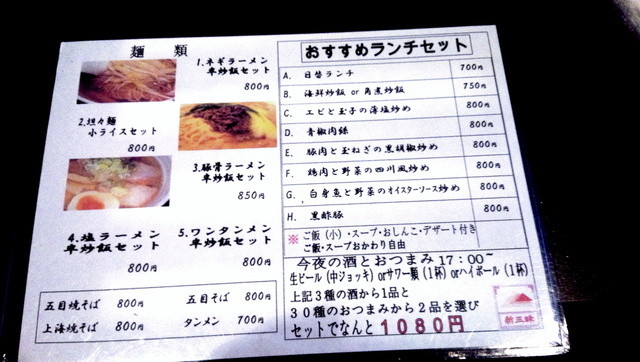 麺 類
1.ネギラーメン
半炒飯セット
800円
2.坦々麺
小ライスセット
800円
3.豚骨ラーメン
半炒飯セット
850円
4.塩ラーメン
半炒飯セット
800円
5.ワンタンメン
半炒飯セット
800円
五目焼そば 800円
五目そば 800円
上海焼そば 800円
タンメン 700円
おすすめランチセット
A. 日替ランチ 700円
B. 海鮮炒飯 or 角煮炒飯 750円
C. エビと玉子の薄塩炒め 800円
D. 青椒肉絲 800円
E. 豚肉と玉ねぎの黒胡椒炒め 800円
F. 鶏肉と野菜の四川風炒め 800円
G. 白身魚と野菜のオイスターソース炒め 800円
H. 黒酢豚 800円
※ ご飯(小)・スープ・おしんこ・デザート付き
ご飯・スープおかわり自由
今夜の酒とおつまみ 17:00~
生ビール(中ジョッキ)orサワー類(1杯)orハイボール(1杯)
上記3種の酒から1品と
30種のおつまみから2品を選び
セットでなんと1080円
新三味